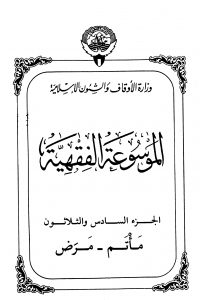 وزارة الأوقاف والشئون الإسلامية
الموسوعة الفقهية
الجزء السادس والثلاثون
مأتم - مرض